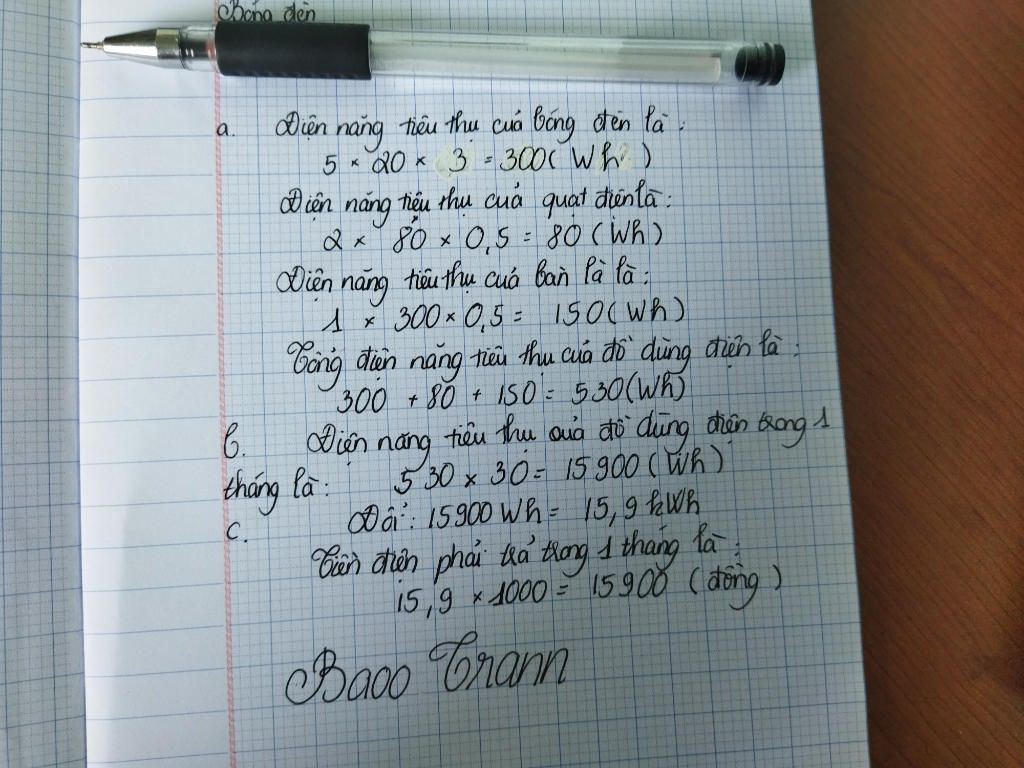 Bóng đèn
a. Điện năng tiêu thụ của bóng đèn là:
5 × 20 × 3 = 300 (Wh)
Điện năng tiêu thụ của quạt điện là:
2 × 80 × 0,5 = 80 (Wh)
Điện năng tiêu thụ của bàn là là:
1 × 300 × 0,5 = 150 (Wh)
Tổng điện năng tiêu thụ của đồ dùng điện là:
300 + 80 + 150 = 530 (Wh)
b. Điện năng tiêu thụ của đồ dùng điện trong 1
tháng là: 530 × 30 = 15900 (Wh)
c. Đổi: 15900 Wh = 15,9 kWh
Tiền điện phải trả trong 1 tháng là:
15,9 × 1000 = 15900 (đồng)
Baoo Trann